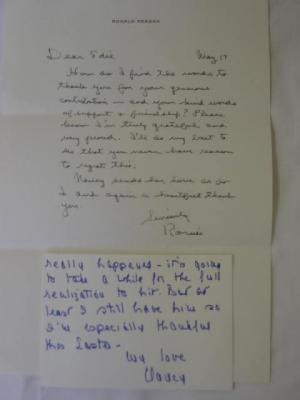 RONALD REAGAN
Dear Edie May 17
How do I find the words to
thank you for your generous
contribution — and your kind words
of support & friendship? Please
know I'm truly grateful and
very proud. I'll do my best to
see that you never have reason
to regret this.
Nancy sends her love as do
I and again a heartfelt thank
you.
Sincerely
Ronnie
really happened – it's going
to take a while for the full
realization to hit. But at
least I still have him so
I'm especially thankful
this Easter –
My love
Nancy